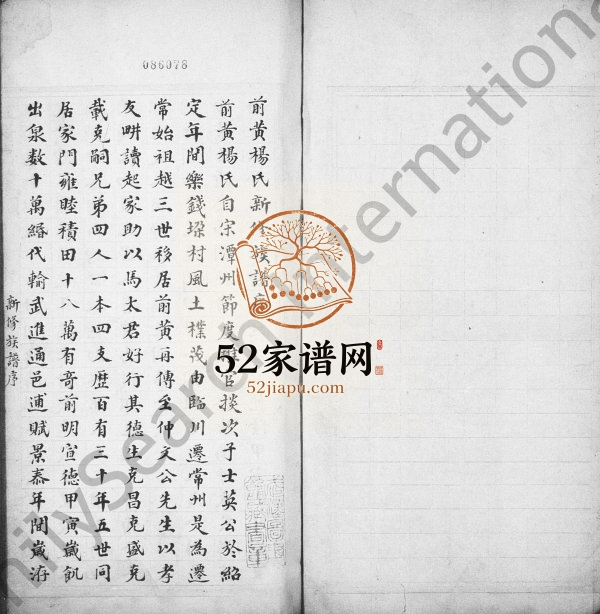 086078
前黄楊氏新修族譜序
前黄楊氏自宋潭州節度推官掞次子士英公於紹
定年間樂錢垜村風土樸茂由臨川遷常州是為遷
常始祖越三世移居前黄再傳至仲文公先生以孝
友畊讀起家助以馬太君好行其德生克昌克盛克
載克嗣兄弟四人一本四支歷百有三十年五世同
居家門雍睦積田十八萬有奇前明宣德甲寅歲飢
出泉数十萬緡代輸武進通邑逋賦景泰年間歲洊
新修族譜序
52家谱网
52jiapu.com
FamilySearch International